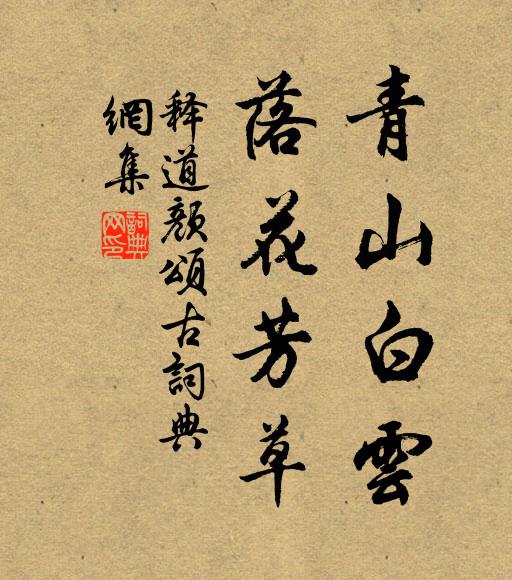 青山白雲
落花芳草
释道颜頌古詞典
網集
詞典網印